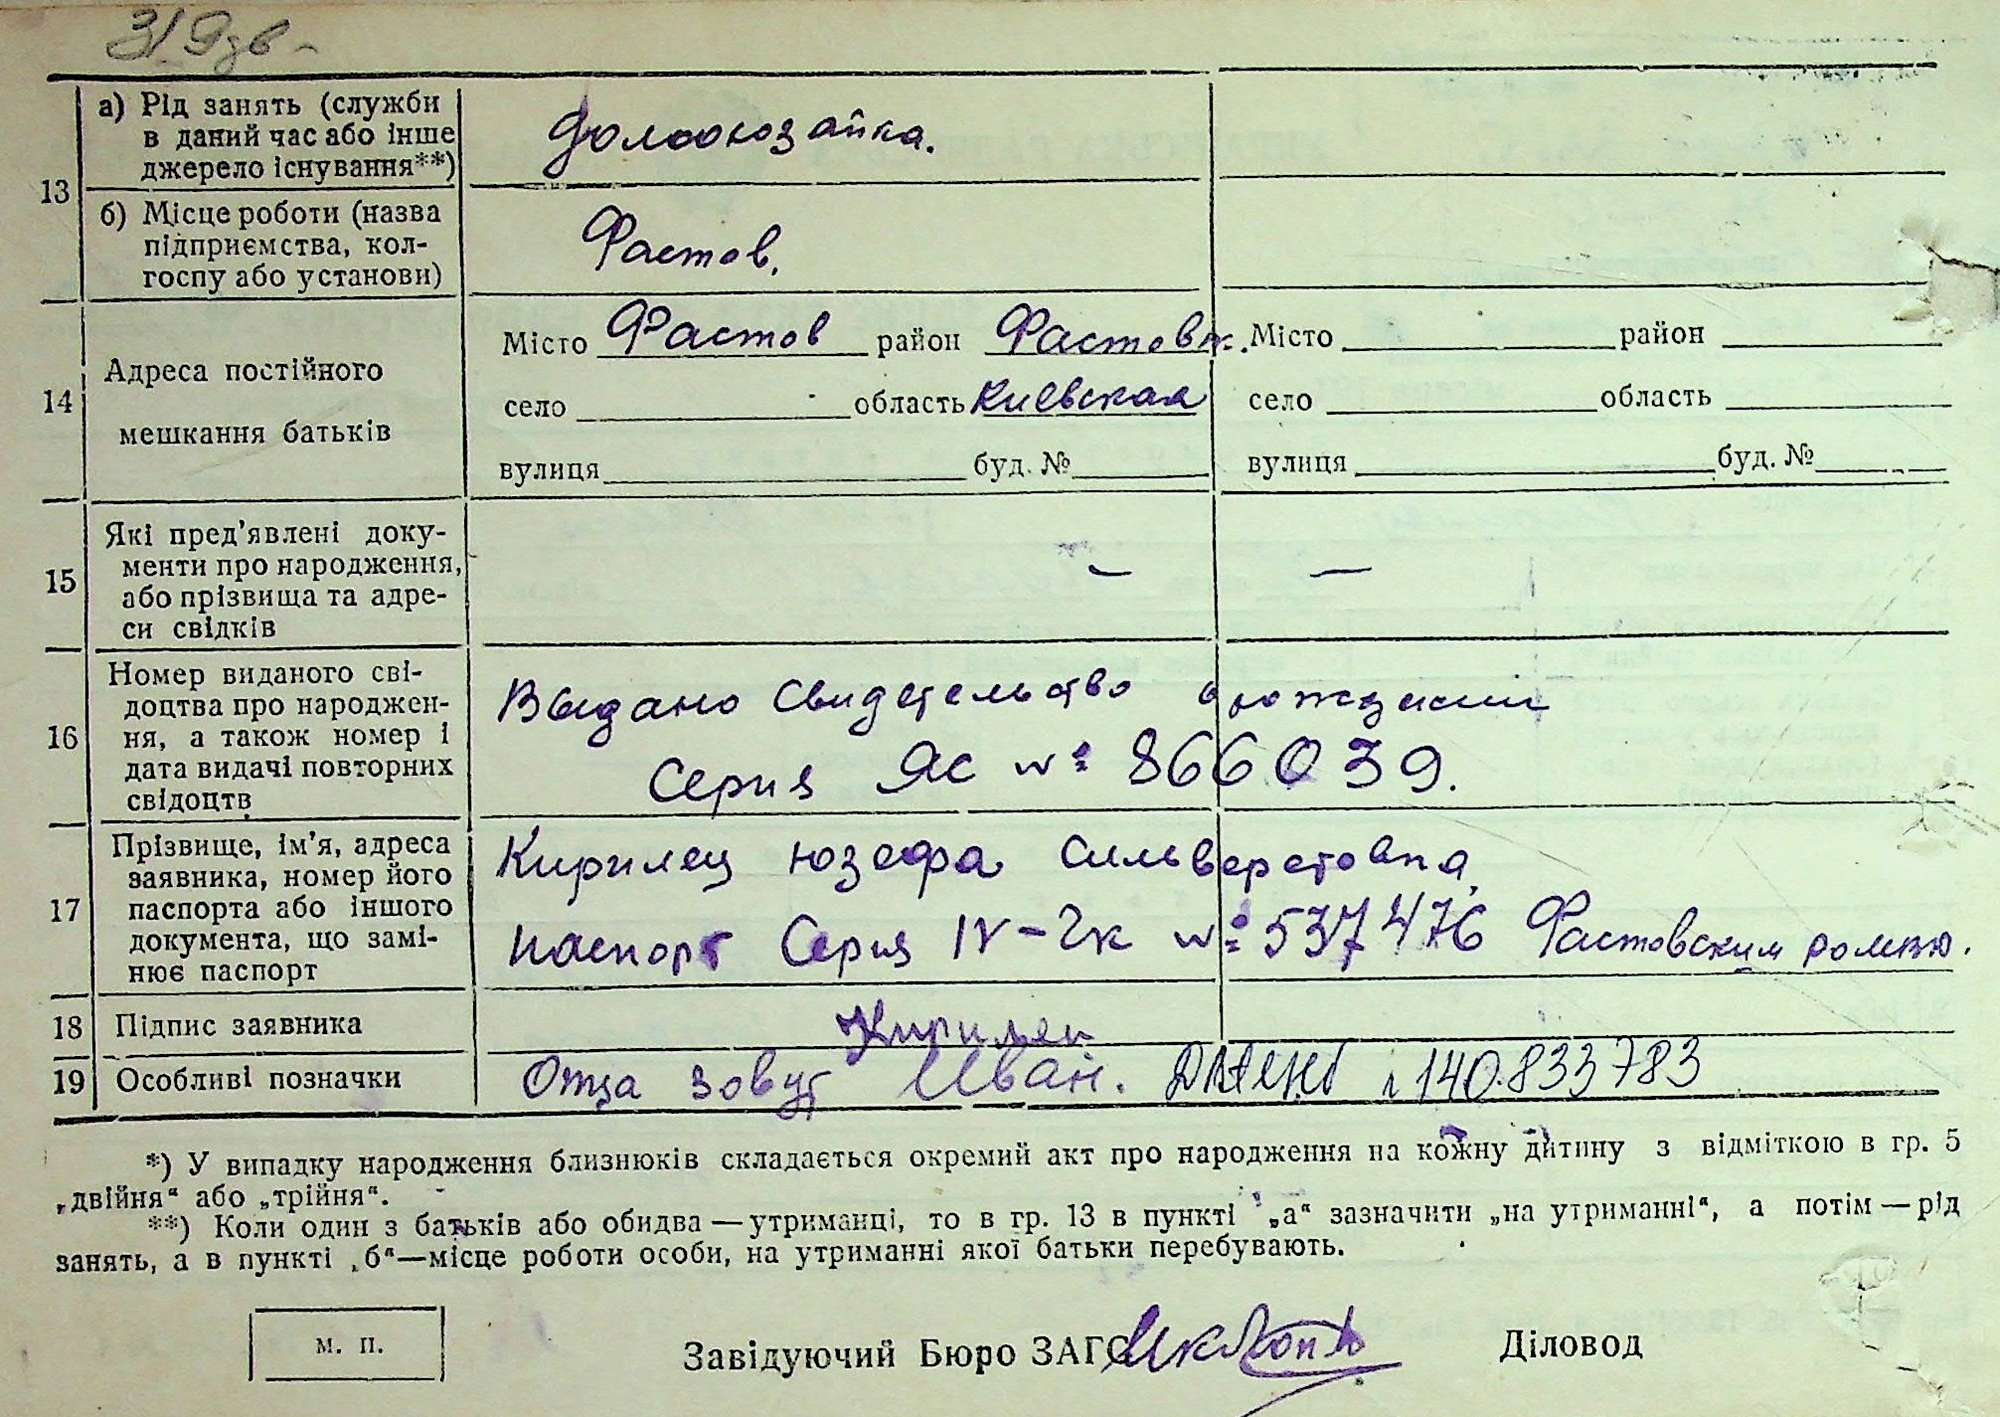 а) Рід занять (служби
в даний час або інше
джерело існування**)
домохозайка.
13
б) Місце роботи (назва
підприємства, кол-
госпу або установи)
Фастов.
14
Адреса постійного
мешкання батьків
Місто Фастов район Фастовск. Місто район
село область Киевская село область
вулиця буд. № вулиця буд. №
15
Які пред'явлені доку-
менти про народження,
або прізвища та адре-
си свідків
— —
16
Номер виданого сві-
доцтва про народжен-
ня, а також номер і
дата видачі повторних
свідоцтв
Выдано Свидетельство о рождении
Серия ЯС № 866039.
17
Прізвище, ім'я, адреса
заявника, номер його
паспорта або іншого
документа, що замі-
нює паспорт
Кирилец Юзефа Сильверстовна,
паспорт Серия IV-Чк № 537476 Фастовским
18 Підпис заявника Кирилец
19 Особливі позначки Отца зовут Иван. 140.833783
*) У випадку народження близнюків складається окремий акт про народження на кожну дитину з відміткою в гр. 5
„двійня“ або „трійня“.
**) Коли один з батьків або обидва — утриманці, то в гр. 13 в пункті „а“ зазначити „на утриманні“, а потім — рід
занять, а в пункті „б“—місце роботи особи, на утриманні якої батьки перебувають.
м. п.
Завідуючий Бюро ЗАГС Діловод